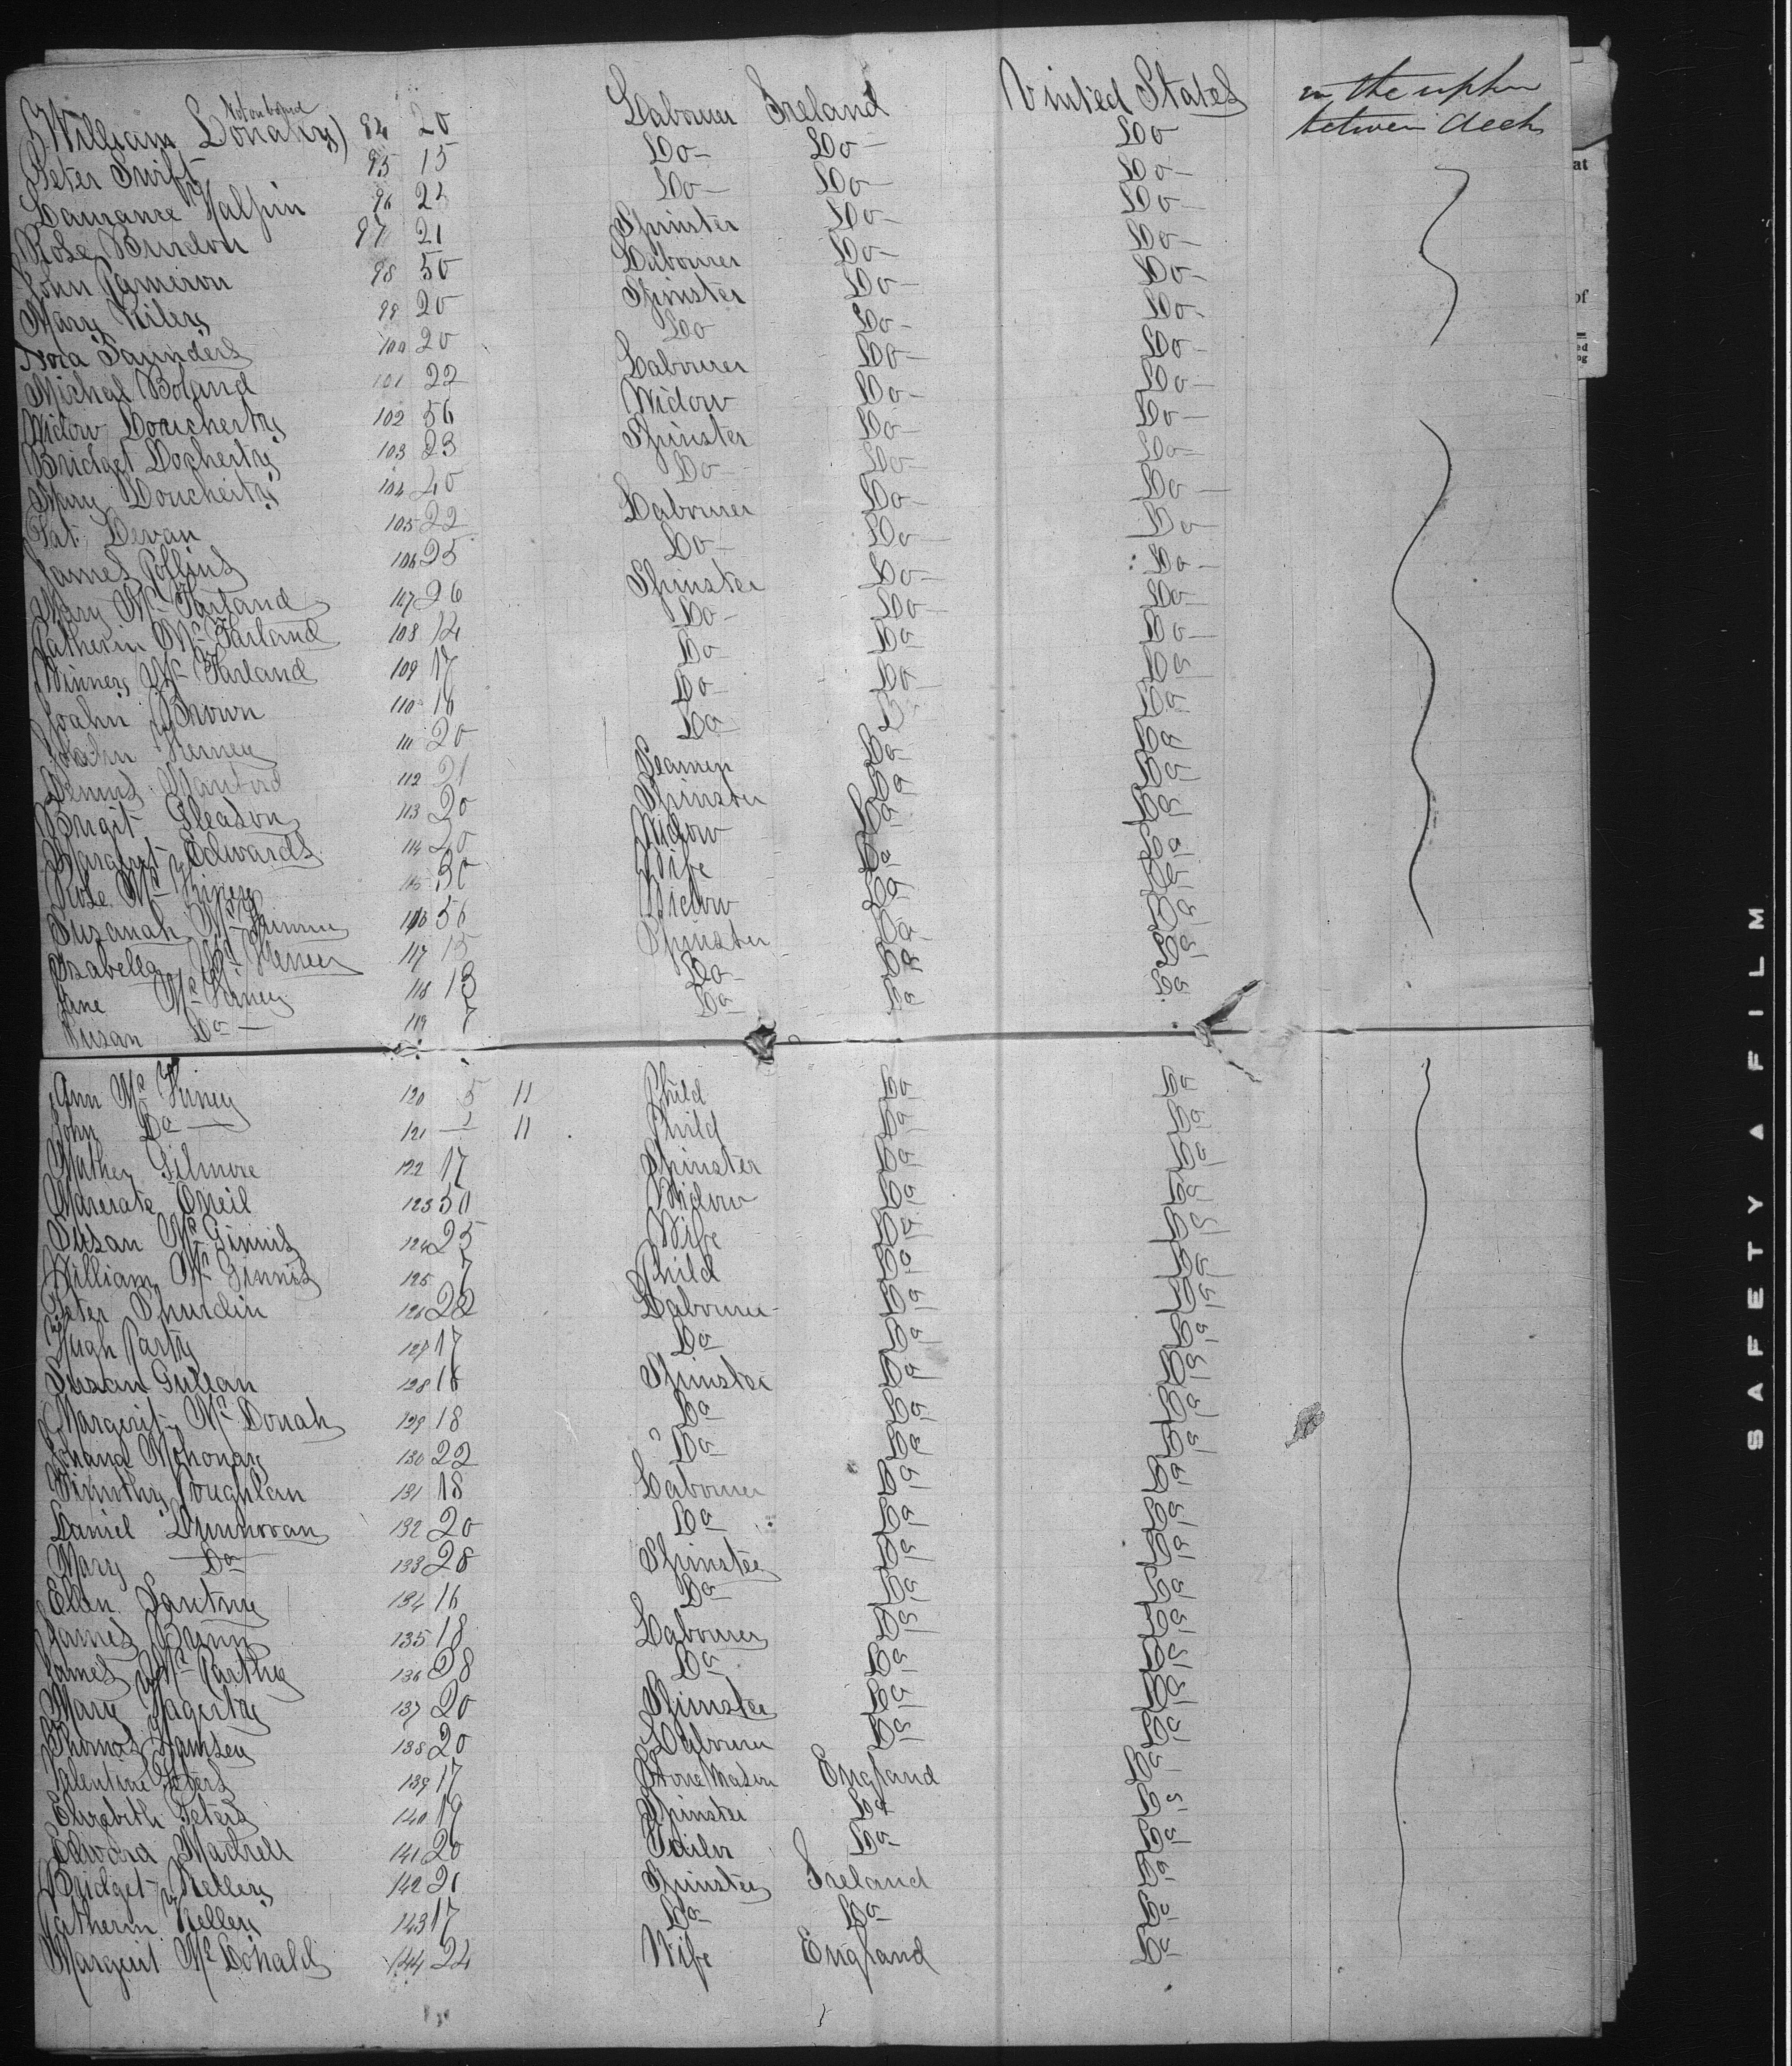 Not on board
(William Donahy) 94 20 Labourer Ireland United States in the upper
between decks
Peter Swift 95 15 Do- Do- Do
Laurance Halpin 96 24 Do- Do- Do-
Rose Burdon 97 21 Spinster Do- Do-
John Cameron 98 50 Labourer Do- Do-
Mary Kiley 99 20 Spinster Do- Do-
Nora Saunders 100 20 Do Do- Do-
Michal Boland 101 22 Labourer Do- Do-
Widow Doucherty 102 56 Widow Do- Do-
Bridget Docherty 103 23 Spinster Do- Do-
Mary Doucherty 104 20 Do- Do- Do-
Pat Devan 105 22 Labourer Do- Do-
James Collins 106 25 Do- Do- Do-
Mary Mc Farland 107 26 Spinster Do- Do-
Catherin Mc Farland 108 14 Do- Do- Do-
Winney Mc Farland 109 17 Do- Do Do-
Joahn Brown 110 16 Do- Do- Do
Joahn Kerney 111 20 Do Do
Dennis 112 21 Seamen Do Do
Brigit Gleason 113 20 Spinster Do Do
Margret Edwards 114 20 Widow Do Do
Rose Mc Kiney 115 30 Wife Do Do
Susanah Mc 116 56 Widow Do Do
Isabella Mc 117 15 Spinster Do Do
Jane Mc Kiney 118 13 Do- Do Do
Susan Do- 119 7 Do Do Do
Ann Mc Kiney 120 5 11 Child Do Do
John Do 121 11 Child Do Do
Mathey Gilmore 122 17 Spinster Do Do
Marerate Oneil 123 50 Widow Do Do
Susan Mc Ginnis 124 25 Wife Do Do
William Mc Ginnis 125 7 Child Do Do
Peter Shurdin 126 28 Labourer Do Do
Hugh Carty 127 17 Do Do Do
Susan Gulean 128 16 Spinster Do Do
Margerit Mc Donah 129 18 Do Do Do
Johana Mohonay 130 22 Do Do Do
Timothy Coughlan 131 18 Labourer Do Do
Daniel Dunnovan 132 20 Do Do Do
Mary Do 133 28 Spinster Do Do
Elen 134 16 Do Do Do
James Bunn 135 18 Labourer Do Do
James Mc Carthy 136 28 Do Do Do
Mary Hagerty 137 20 Spinster Do Do
Thomas Ramsey 138 20 Labourer Do Do
Valentine Peters 139 17 Stone Mason England Do
Elizabith Peters 140 19 Spinster Do Do
Edward Madrell 141 20 Tailor Do Do
Bridget Kellery 142 21 Spinster Ireland Do
Catherin Kellery 143 17 Do Do Do
Margirit Mc Donald 144 24 Wife England Do
SAFETY ▲ FILM
at
of
ed